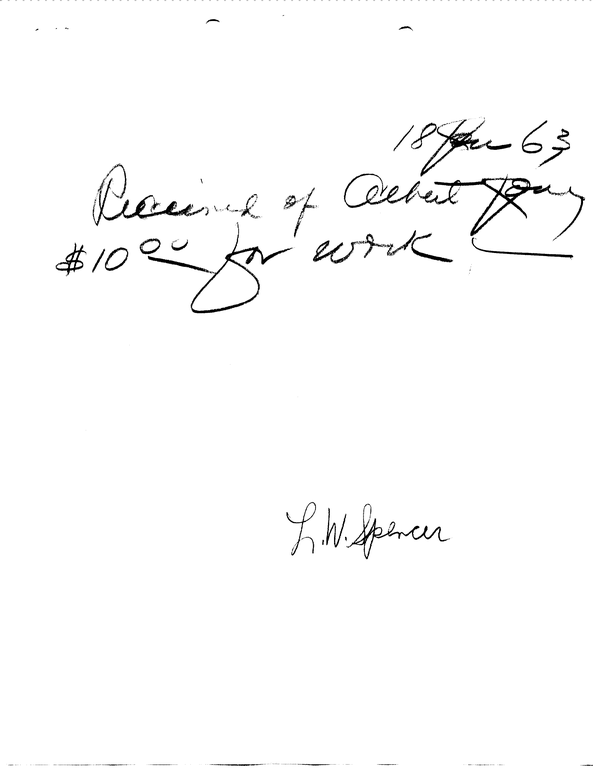 18 Jan 63
Received of Albert
$10.00 for work
L.W. Spencer